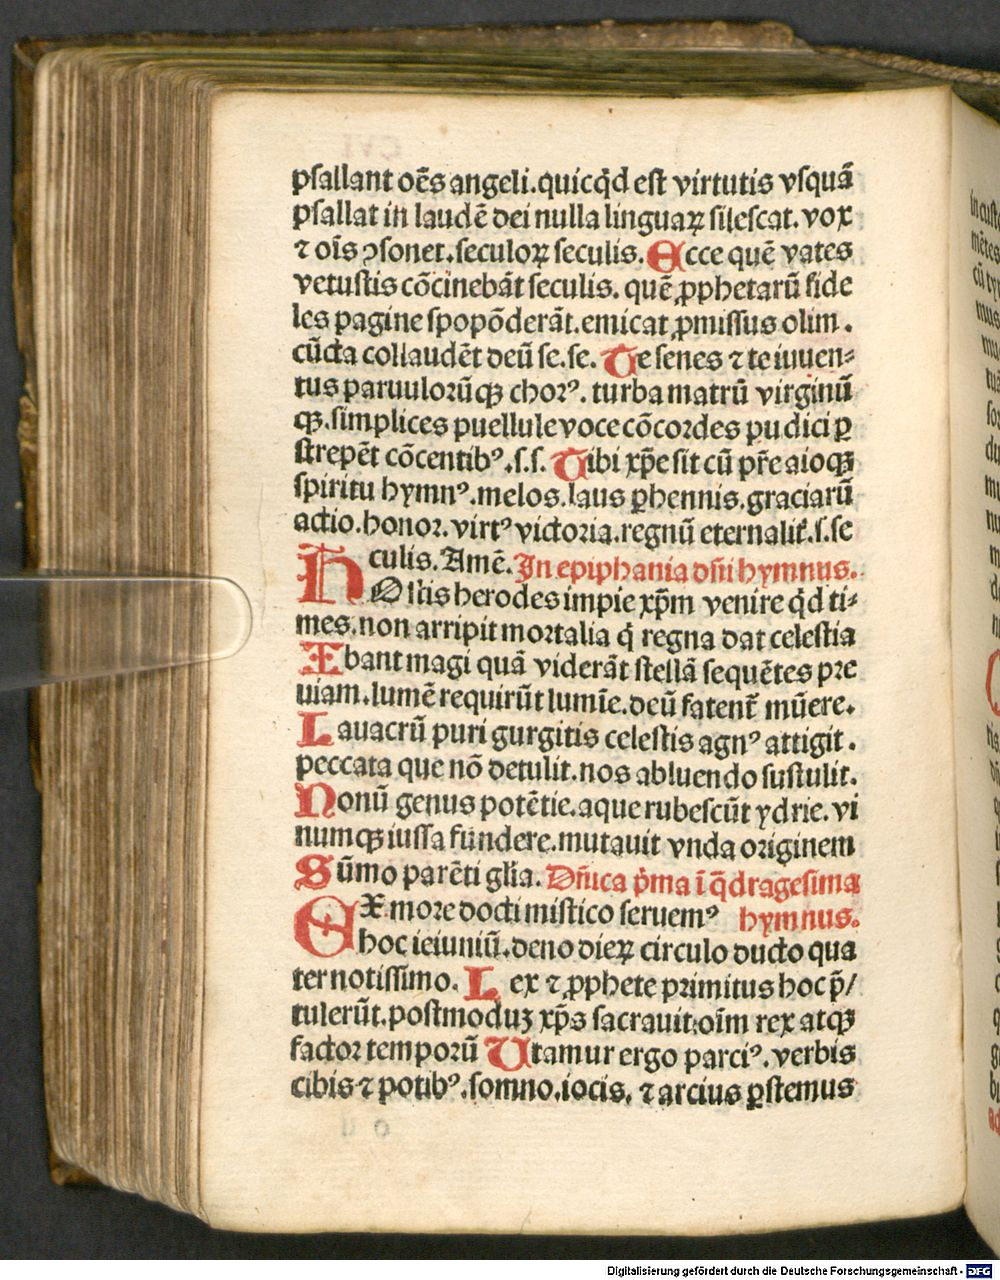 psallant oēs angeli.quicq̄d est virtutis vsquā
psallat in laudē dei nulla linguaꝝ silescat. vox
⁊ oīs ↄsonet.seculoꝝ seculis. Ecce quē vates
vetustis cōcinebāt seculis. quē ꝓphetarū fide
les pagine spopōderāt.emicat ꝓmissus olim.
cūcta collaudēt deū se.se. Te senes ⁊ te iuuen⸗
tus paruulorūqꝫ chorꝰ. turba matrū virginū
qꝫ.simplices puellule voce cōcordes pudici ꝑ
strepēt cōcentibꝰ.s.s. Tibi xp̄e sit cū pr̄e aioqꝫ
spiritu hymnꝰ.melos.laus ꝑhennis.graciarū
actio.honor.virtꝰ victoria.regnū eternalit̄.s.se
culis.Amē. In epiphania dn̄i hymnus.
HOstis herodes impie xp̄m venire q̄d ti⸗
mes.non arripit mortalia q̄ regna dat celestia
Ibant magi quā viderāt stellā sequētes pre
uiam.lumē requirūt lumīe.deū fatent̄ mūere.
Lauacrū puri gurgitis celestis agnꝰ attigit.
peccata que nō detulit.nos abluendo sustulit.
Nonū genus potētie.aque rubescūt ydrie.vi
numqꝫ iussa fundere.mutauit vnda originem
Sūmo parēti gl̄ia. Dn̄ica p̄ma ī q̄dragesima
EX more docti mistico seruemꝰ hymnus.
hoc ieiuniū.deno dieꝝ circulo ducto qua
ter notissimo. Lex ⁊ ꝓphete primitus hoc p̄/
tulerūt.postmoduꝫ xp̄s sacrauit:oīm rex atqꝫ
factor temporū Utamur ergo parciꝰ.verbis
cibis ⁊ potibꝰ.somno.iocis. ⁊ arcius ꝑstemus
Digitalisierung gefördert durch die Deutsche Forschungsgemeinschaft - DFG